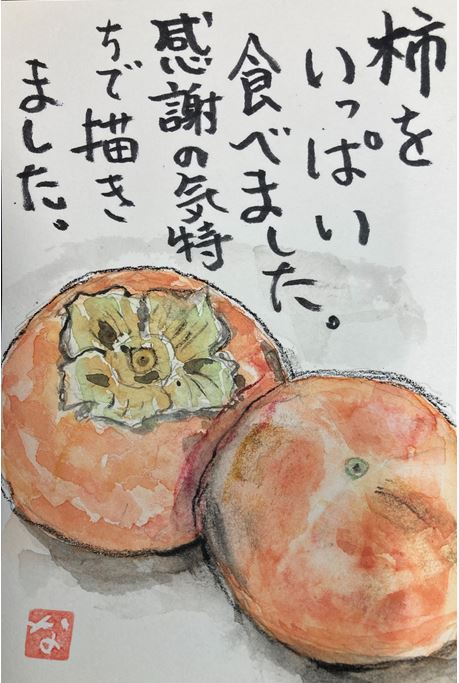 柿を
いっぱい
食べました。
感謝の気持
ちで描き
ました。
な